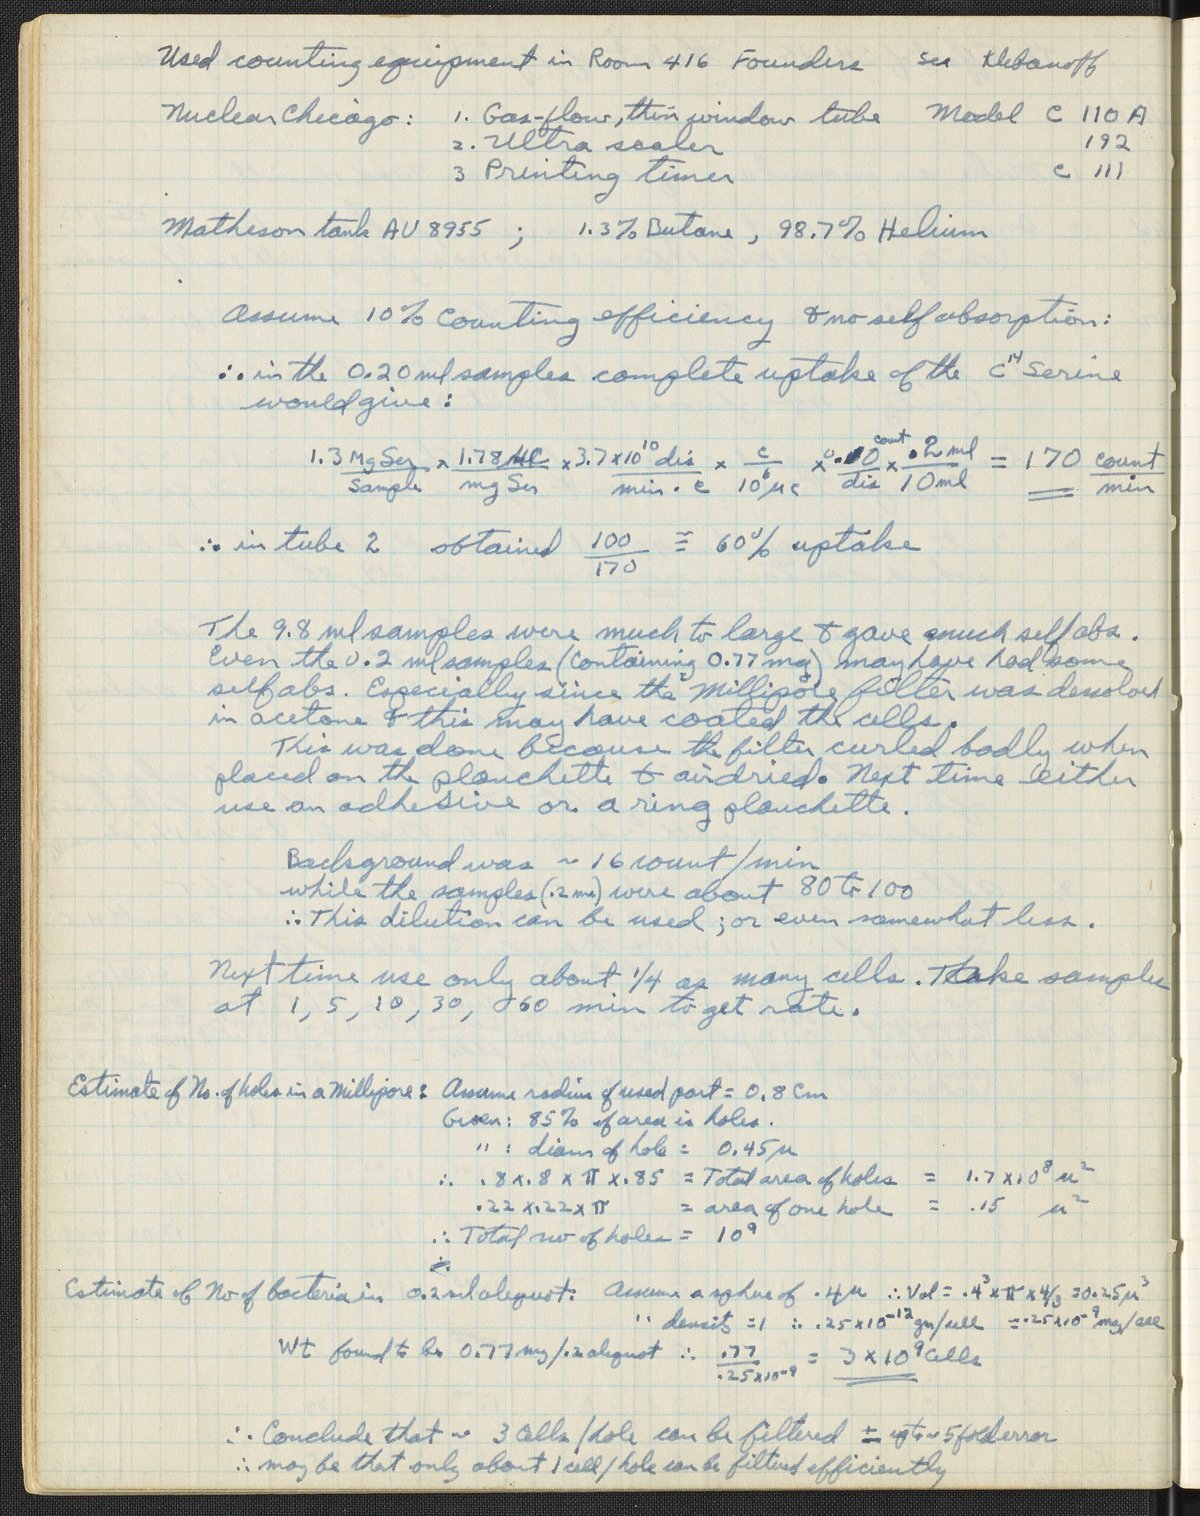 Used counting equipment in Room 416 Founders See Klebanoff
Nuclear Chicago: 1. Gas-flow, thin window tube Model C 110 A
2. Ultra scaler 192
3 Printing timer C 111
Matheson tank AU 8955 ; 1.3% Butane, 98.7% Helium
Assume 10% Counting efficiency & no self absorption:
∴ in the 0.20 ml samples complete uptake of the C¹⁴ Serine
would give:
1.3 Mg Ser/Sample × 1.78 μc/mg Ser × 3.7×10¹⁰ dis/min · c × c/10⁶ μc × 0.10 count/dis × .2 ml/10 ml = 170 count/min
∴ in tube 2 obtained 100/170 ≅ 60% uptake
The 9.8 ml samples were much to large & gave much self abs.
Even the 0.2 ml samples (containing 0.77 mg) may have had some
self abs. Especially since the Millipore filter was dessolved
in acetone & this may have coated the cells.
This was done because the filter curled badly when
placed on the planchette & air dried. Next time either
use an adhesive or a ring planchette.
Background was ~ 16 count/min
while the samples (.2 ml) were about 80 to 100
∴ This dilution can be used ; or even somewhat less.
Next time use only about 1/4 as many cells. Take samples
at 1, 5, 10, 30, 60 min to get rate.
Estimate of No. of holes in a Millipore: Assume radius of used part = 0.8 cm
Given: 85% of area is holes.
" : diam of hole = 0.45 μ
∴ .8 × .8 × π × .85 = Total area of holes = 1.7 × 10⁸ μ²
.22 × .22 × π = area of one hole = .15 μ²
∴ Total no of holes = 10⁹
∴
Estimate of No of bacteria in 0.2 ml aliquot: Assume a sphere of .4 μ ∴ Vol = .4³ × π × 4/3 = 0.25 μ³
" density = 1 ∴ .25×10⁻¹² gm/cell = .25×10⁻⁹ mg/cell
Wt found to be 0.77 mg/.2 aliquot ∴ .77/.25×10⁻⁹ = 3 × 10⁹ Cells
∴ Conclude that ~ 3 Cells/hole can be filtered ± up to ~ 5 fold error
∴ may be that only about 1 cell/hole can be filtered efficiently